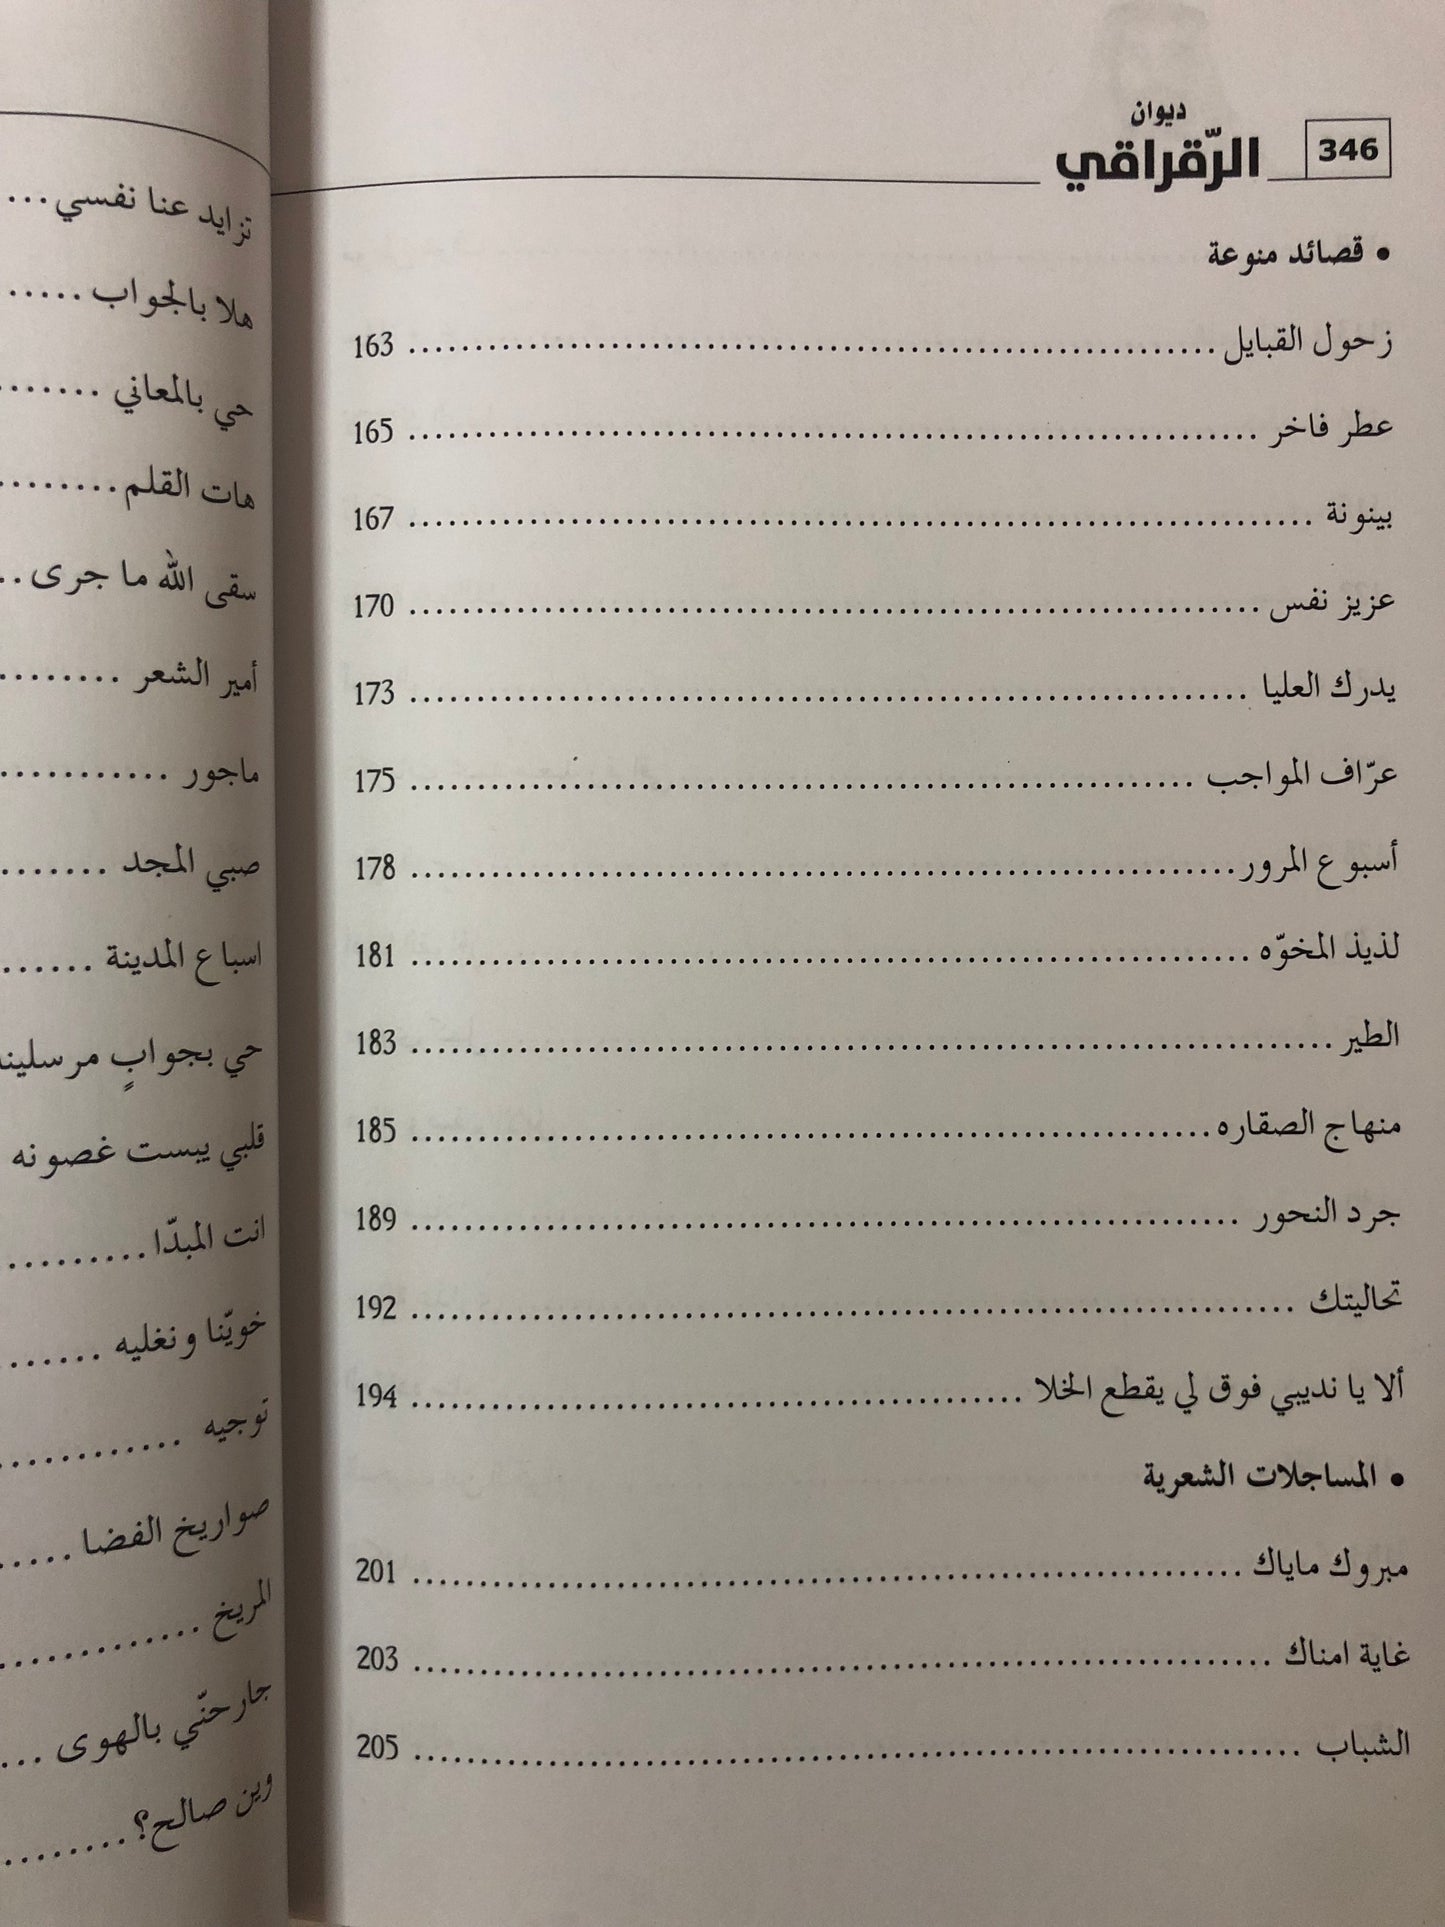 346
ديوان
الرّقراقي
• قصائد منوعة
زحول القبايل ........ 163
عطر فاخر ........ 165
بينونة ........ 167
عزيز نفس ........ 170
يدرك العليا ........ 173
عرّاف المواجب ........ 175
أسبوع المرور ........ 178
لذيذ المخوّه ........ 181
الطير ........ 183
منهاج الصقاره ........ 185
جرد النحور ........ 189
تحاليتك ........ 192
ألا يا نديبي فوق لي يقطع الخلا ........ 194
• المساجلات الشعرية
مبروك ماياك ........ 201
غاية امناك ........ 203
الشباب ........ 205
تزايد عنا نفسي ...
هلا بالجواب .....
حي بالمعاني .......
هات القلم ........
سقى الله ما جرى ..
أمير الشعر ........
ماجور ...........
صبي المجد .......
اسباع المدينة ......
حي بجوابٍ مرسلينه
قلبي يبست غصونه
انت المبدّا .........
خويّنا ونغليه .......
توجيه ............
صواريخ الفضا .....
المريخ .............
جارحنّي بالهوى ...
وين صالح؟ ........